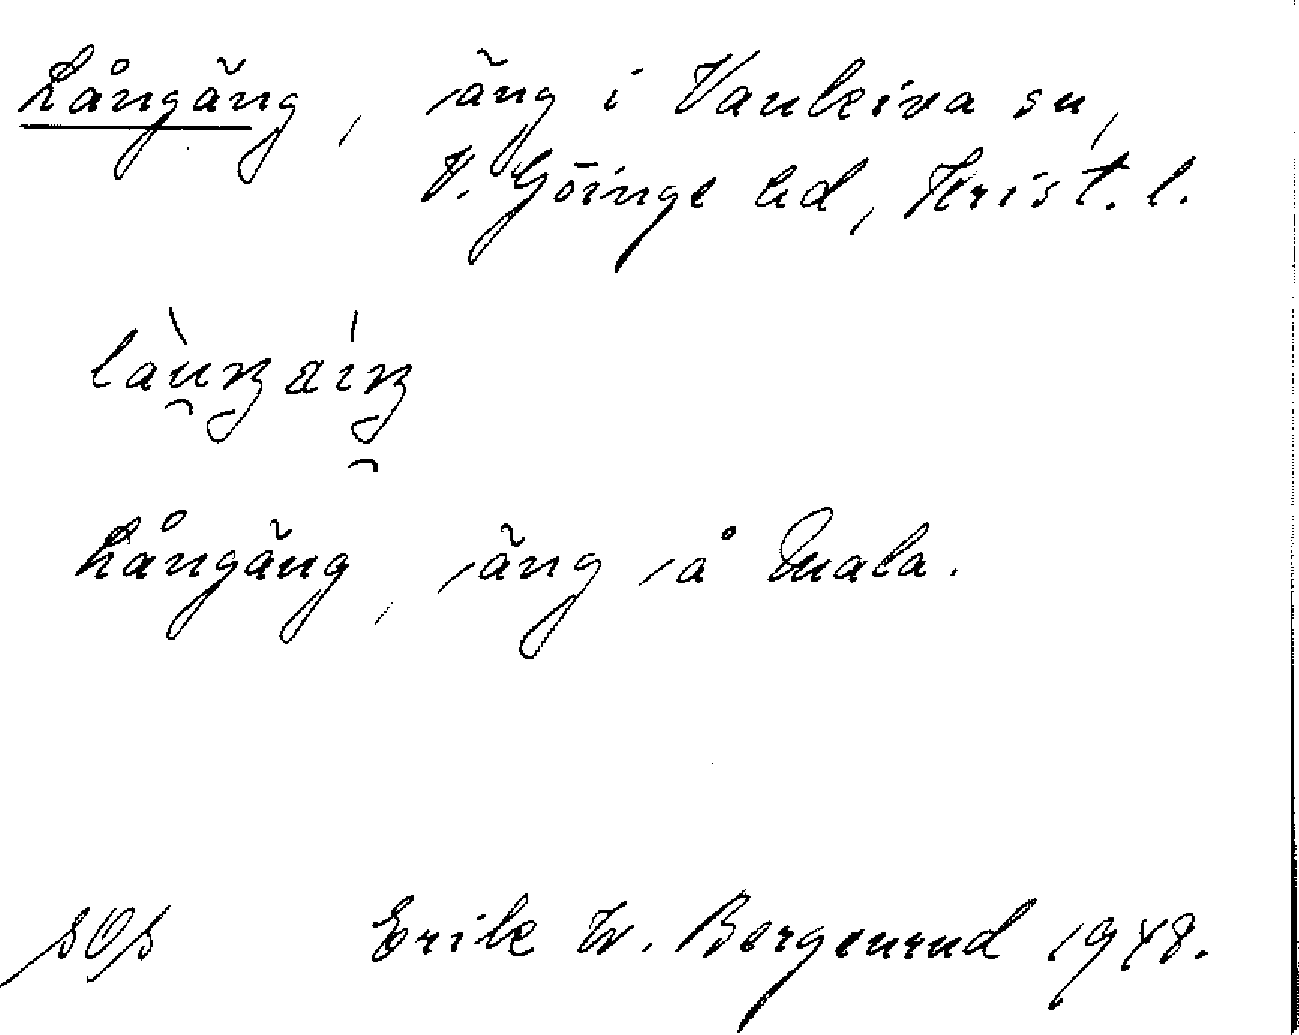 Långäng, äng i Vankiva sn,
V. Göinge hd, Krist. l.
Långäng, äng å Mala.
Erik W. Bergenrud 1948.